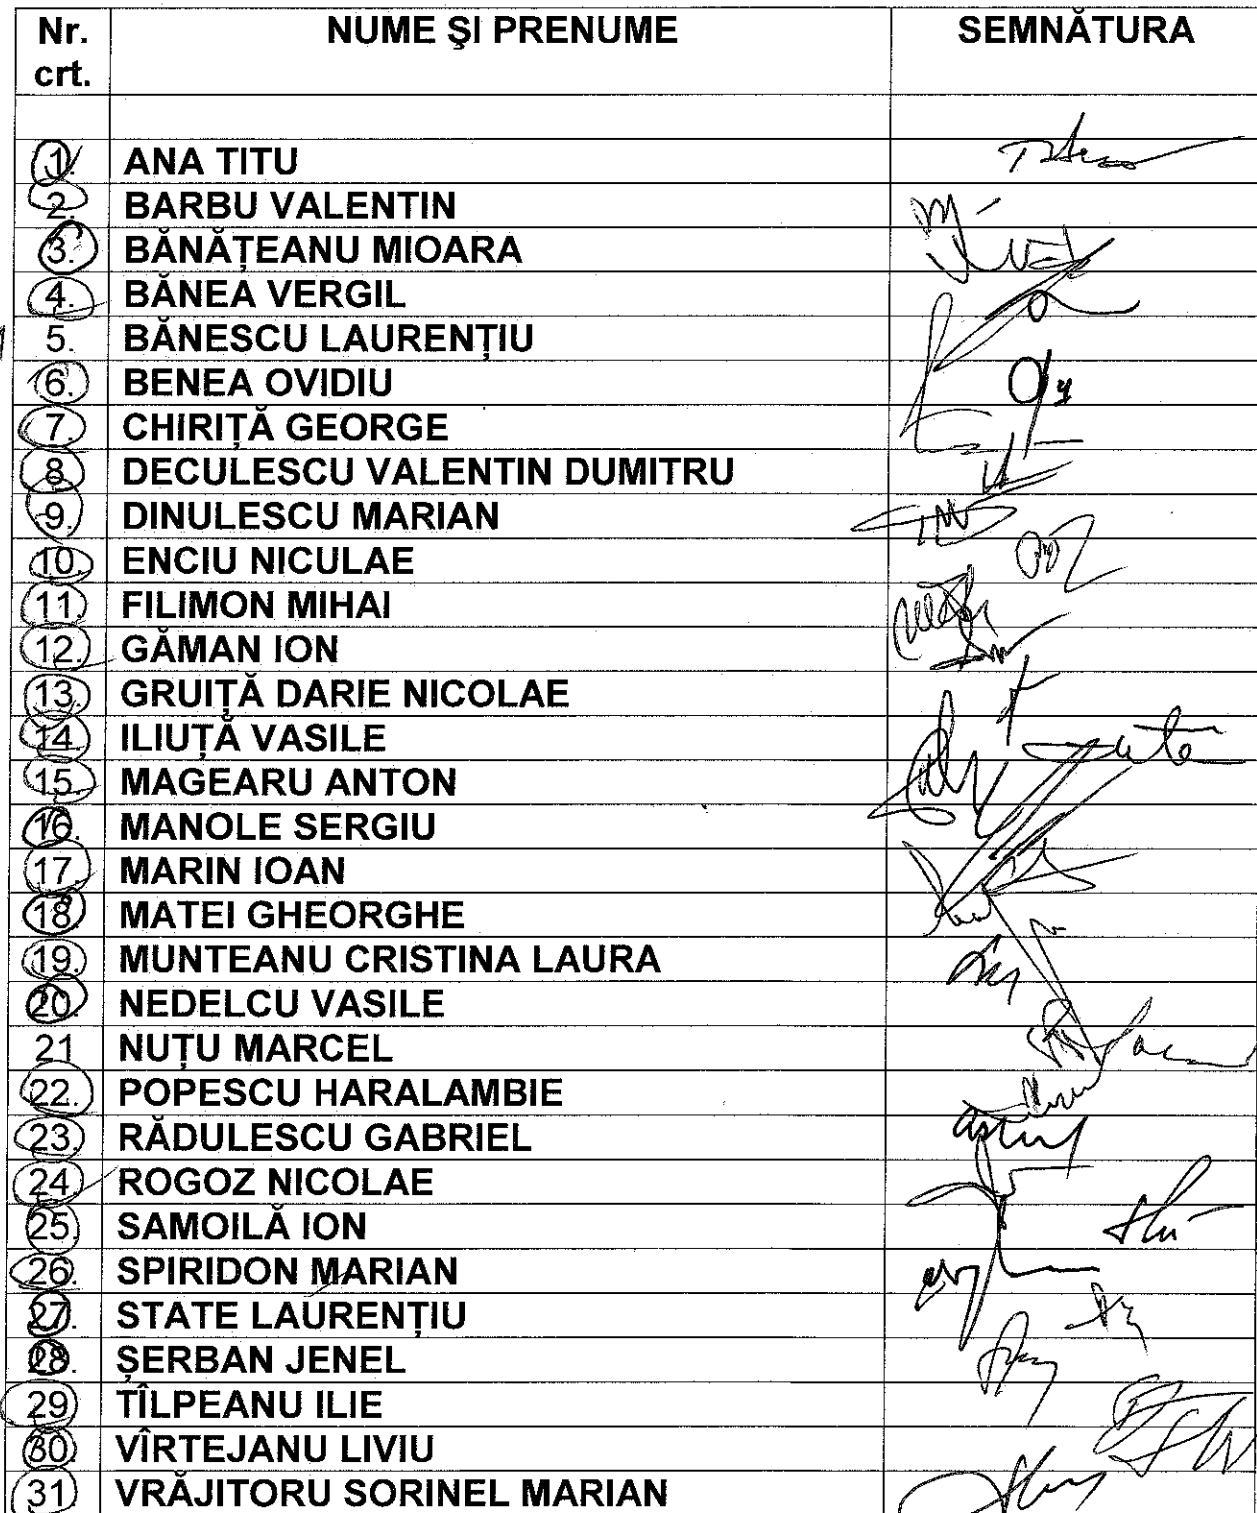 Nr. crt. NUME ŞI PRENUME SEMNĂTURA
1. ANA TITU
2. BARBU VALENTIN
3. BĂNĂȚEANU MIOARA
4. BĂNEA VERGIL
5. BĂNESCU LAURENȚIU
6. BENEA OVIDIU
7. CHIRIȚĂ GEORGE
8. DECULESCU VALENTIN DUMITRU
9. DINULESCU MARIAN
10. ENCIU NICULAE
11. FILIMON MIHAI
12. GĂMAN ION
13. GRUIȚĂ DARIE NICOLAE
14. ILIUȚĂ VASILE
15. MAGEARU ANTON
16. MANOLE SERGIU
17. MARIN IOAN
18. MATEI GHEORGHE
19. MUNTEANU CRISTINA LAURA
20. NEDELCU VASILE
21 NUȚU MARCEL
22. POPESCU HARALAMBIE
23. RĂDULESCU GABRIEL
24. ROGOZ NICOLAE
25. SAMOILĂ ION
26. SPIRIDON MARIAN
27. STATE LAURENȚIU
28. ȘERBAN JENEL
29 TÎLPEANU ILIE
30. VÎRTEJANU LIVIU
31 VRĂJITORU SORINEL MARIAN